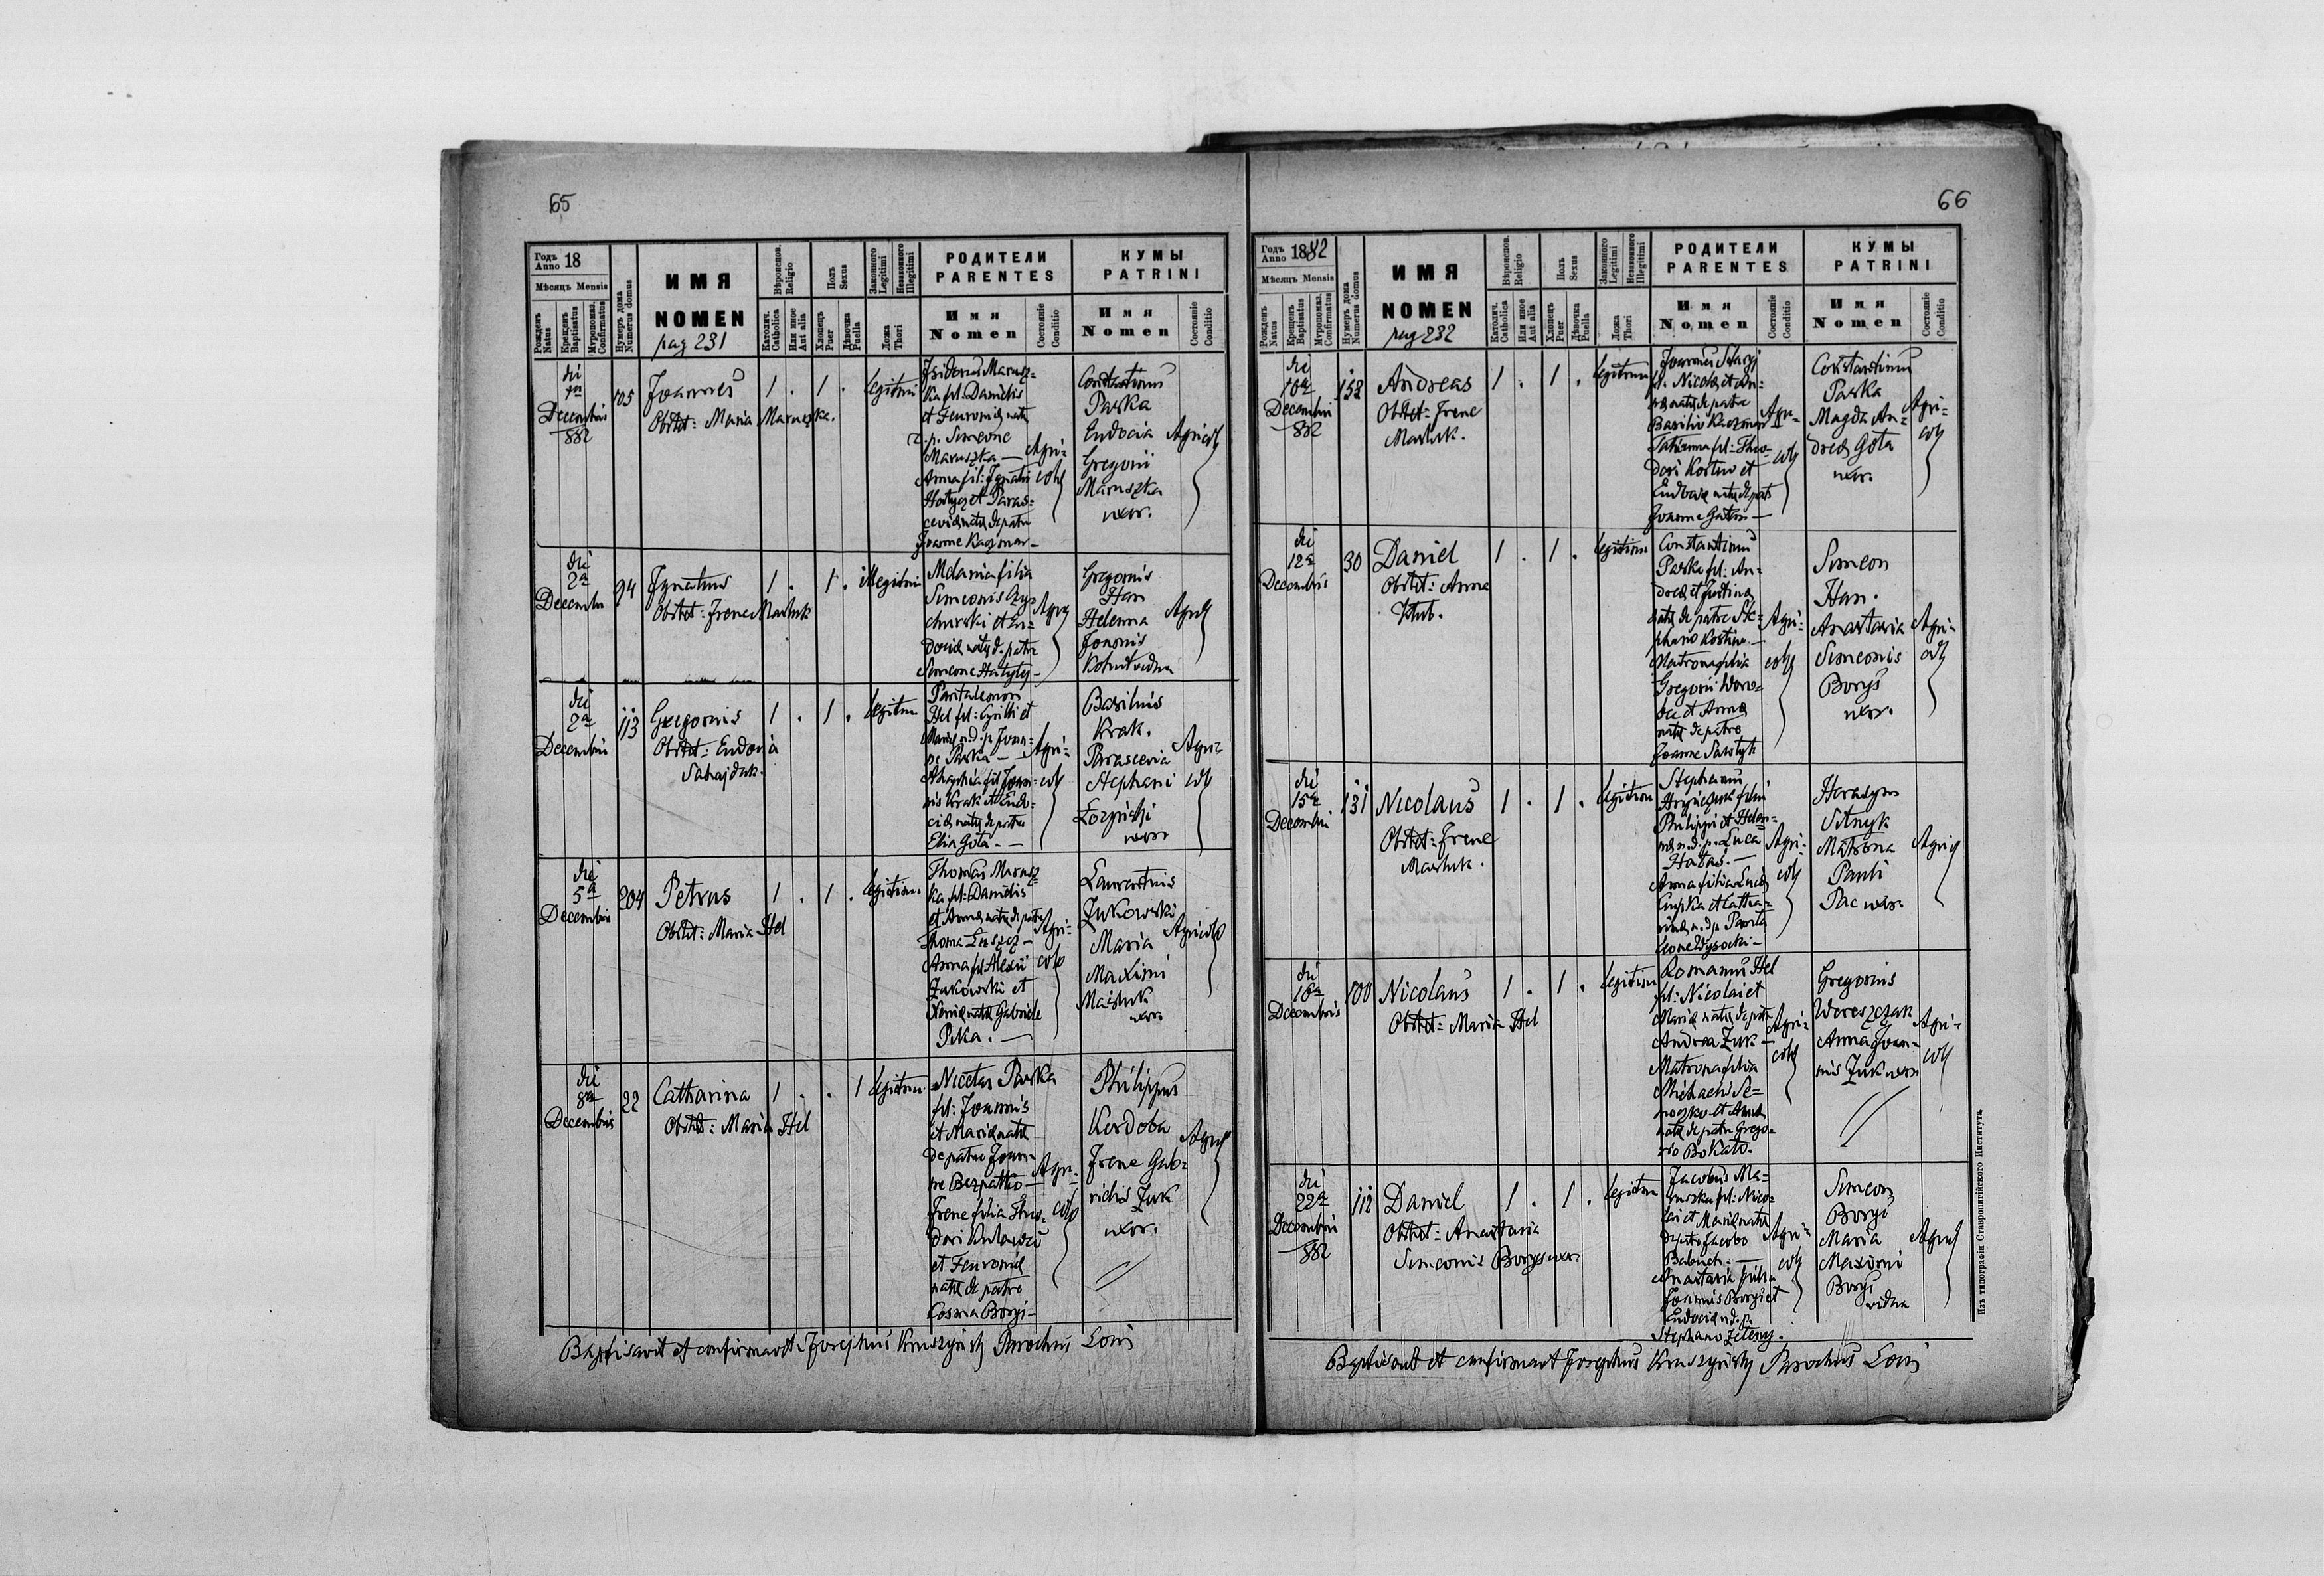 65
Годъ
Anno 18
Мѣсяцъ Mensis
Рожденъ
Natus
Крещенъ
Baptisatus
Мѵропомаз.
Confirmatus
Нумеръ дома
Numerus domus
ИМЯ
NOMEN
pag 231
Вѣроиспов.
Religio
Католич.
Catholica
Или иное
Aut alia
Полъ
Sexus
Хлопецъ
Puer
Дѣвочка
Puella
Законного
Legitimi
Незаконного
Illegitimi
Ложа
Thori
РОДИТЕЛИ
PARENTES
Имя
Nomen
Состояніе
Conditio
КУМЫ
PATRINI
Имя
Nomen
Состояніе
Conditio
die
1a
Decembris
882
105
Joannes
Obstet: Maria Maruszka.
1 . 1 .
legitimi
Isidorus Marusz=
ka fil: Danielis
et Feuroniae natae
d. p. Simeone
Maruszka —
Anna fil: Ignatii
et Paras=
ceviae natae de patre
Joanne Kaczmar —
Agri=
colae
Constantinus
Parka
Eudocia
Gregorii
Maruszka
uxor.
Agricolae
die
2a
Decembris
94
Ignatius
Obstet: Irene Masluk
1 . 1 .
illegitimi
Melania filia
Simeonis
et Eu=
dociae natae d. patre
Simeone
Gregorius
Han
Helenna
Joannis
vidua
Agricolae
die
2a
Decembris
113
Gregorius
Obstet: Eudocia
Sahajdak.
1 . 1 .
legitimi
Pantaleimon
Hel fil: Cyrilli et
Mariae n. d. p. Joan=
ne Parka —
Agaphia fil: Joan=
nis Krak et Eudo=
ciae natae de patre
Elia Gota. —
Agri=
colae
Basilius
Krak.
Parascevia
Stephani
Łozyński
uxor
Agri=
colae
die
5a
Decembris
204
Petrus
Obstet: Maria Hel
1 . 1 .
legitimi
Thomas Marusz=
ka fil: Danielis
et Annae natae de patre
Thoma Łuszcz —
Anna fil Alexii
Żukowski et
Xeniae natae Gabriele
Pika. —
Agri=
colae
Laurentius
Żukowski
Maria
Maximi
Masluk
uxor
Agricolae
die
8va
Decembris
22
Catharina
Obstet: Maria Hel
1 . . 1
legitimi
Nicetas Parka
fil: Joannis
et Mariae natae
de patre Joan=
ne Bezpałko —
Irene filia Theo=
dori
et Feuroniae
natae de patre
Cosma Borys —
Agri=
colae
Philippus
Kordoba
Irene Gab=
rielis Żuk
uxor.
Agricolae
Baptisavit et confirmavit Josephus Kruszyński Parochus Loci
66
Годъ
Anno 1882
Мѣсяцъ Mensis
Рожденъ
Natus
Крещенъ
Baptisatus
Мѵропомаз.
Confirmatus
Нумеръ дома
Numerus domus
ИМЯ
NOMEN
pag 232
Вѣроиспов.
Religio
Католич.
Catholica
Или иное
Aut alia
Полъ
Sexus
Хлопецъ
Puer
Дѣвочка
Puella
Законного
Legitimi
Незаконного
Illegitimi
Ложа
Thori
РОДИТЕЛИ
PARENTES
Имя
Nomen
Состояніе
Conditio
КУМЫ
PATRINI
Имя
Nomen
Состояніе
Conditio
die
10a
Decembris
882
158
Andreas
Obstet: Irene
Masluk.
1 . 1 .
legitimi
Joannes
fil. Nicolai et An=
nae natae de patre
Basilio Kaczmar
Tatianna fil: Theo=
dori Kostiw et
Eudociae natae de patre
Joanne —
Agri=
colae
Constantinus
Parka
Magda An=
dreae Gota
uxor.
Agri=
colae
die
12a
Decembris
30
Daniel
Obstet: Anna
1 . 1 .
legitimi
Constantinus
Parka fil: An=
dreae et Justinae
natae de patre Ste=
phano Kostiw. —
Matrona filia
Gregorii
et Annae
natae de patre
Joanne
Agri=
colae
Simeon
Han.
Anastasia
Simeonis
Borys
uxor.
Agri=
colae
die
15a
Decembris
131
Nicolaus
Obstet: Irene
Masluk.
1 . 1 .
legitimi
Stephanus
filius
Philippi et Hele=
nae n. d. p. Luca
Hatas. —
Anna filia Lucae
et Catha=
rinae n. d. p. Panta
leone Wysocki —
Agri=
colae
Harasym
Sitnyk
Matrona
Pauli
Pac uxor
Agricolae
die
16a
Decembris
100
Nicolaus
Obstet: Maria Hel
1 . 1 .
legitimi
Romanus Hel
fil: Nicolai et
Mariae natae de patre
Andrea Żuk —
Matrona filia
Michaelis Se=
et Annae
natae de patre Grego=
rio Bokało.
Agri=
colae
Gregorius
Wereszczak
Anna Joan=
nis Żuk uxor
Agri=
colae
die
22a
Decembris
882
112
Daniel
Obstet: Anastasia
Simeonis Borys uxor
1 . 1 .
legitimi
Jacobus Ma=
ruszka fil: Nico=
lai et Mariae natae
de patre Jacobo
Babiuch. —
Anastasia filia
Joannis Borys et
Eudociae n. d. p.
Stephano Żeleny.
Agri=
colae
Simeon
Borys
Maria
Maximi
Borys
vidua
Agricolae
Baptisavit et confirmavit Josephus Kruszyński Parochus Loci
Изъ типографіи Ставропигійского Института.